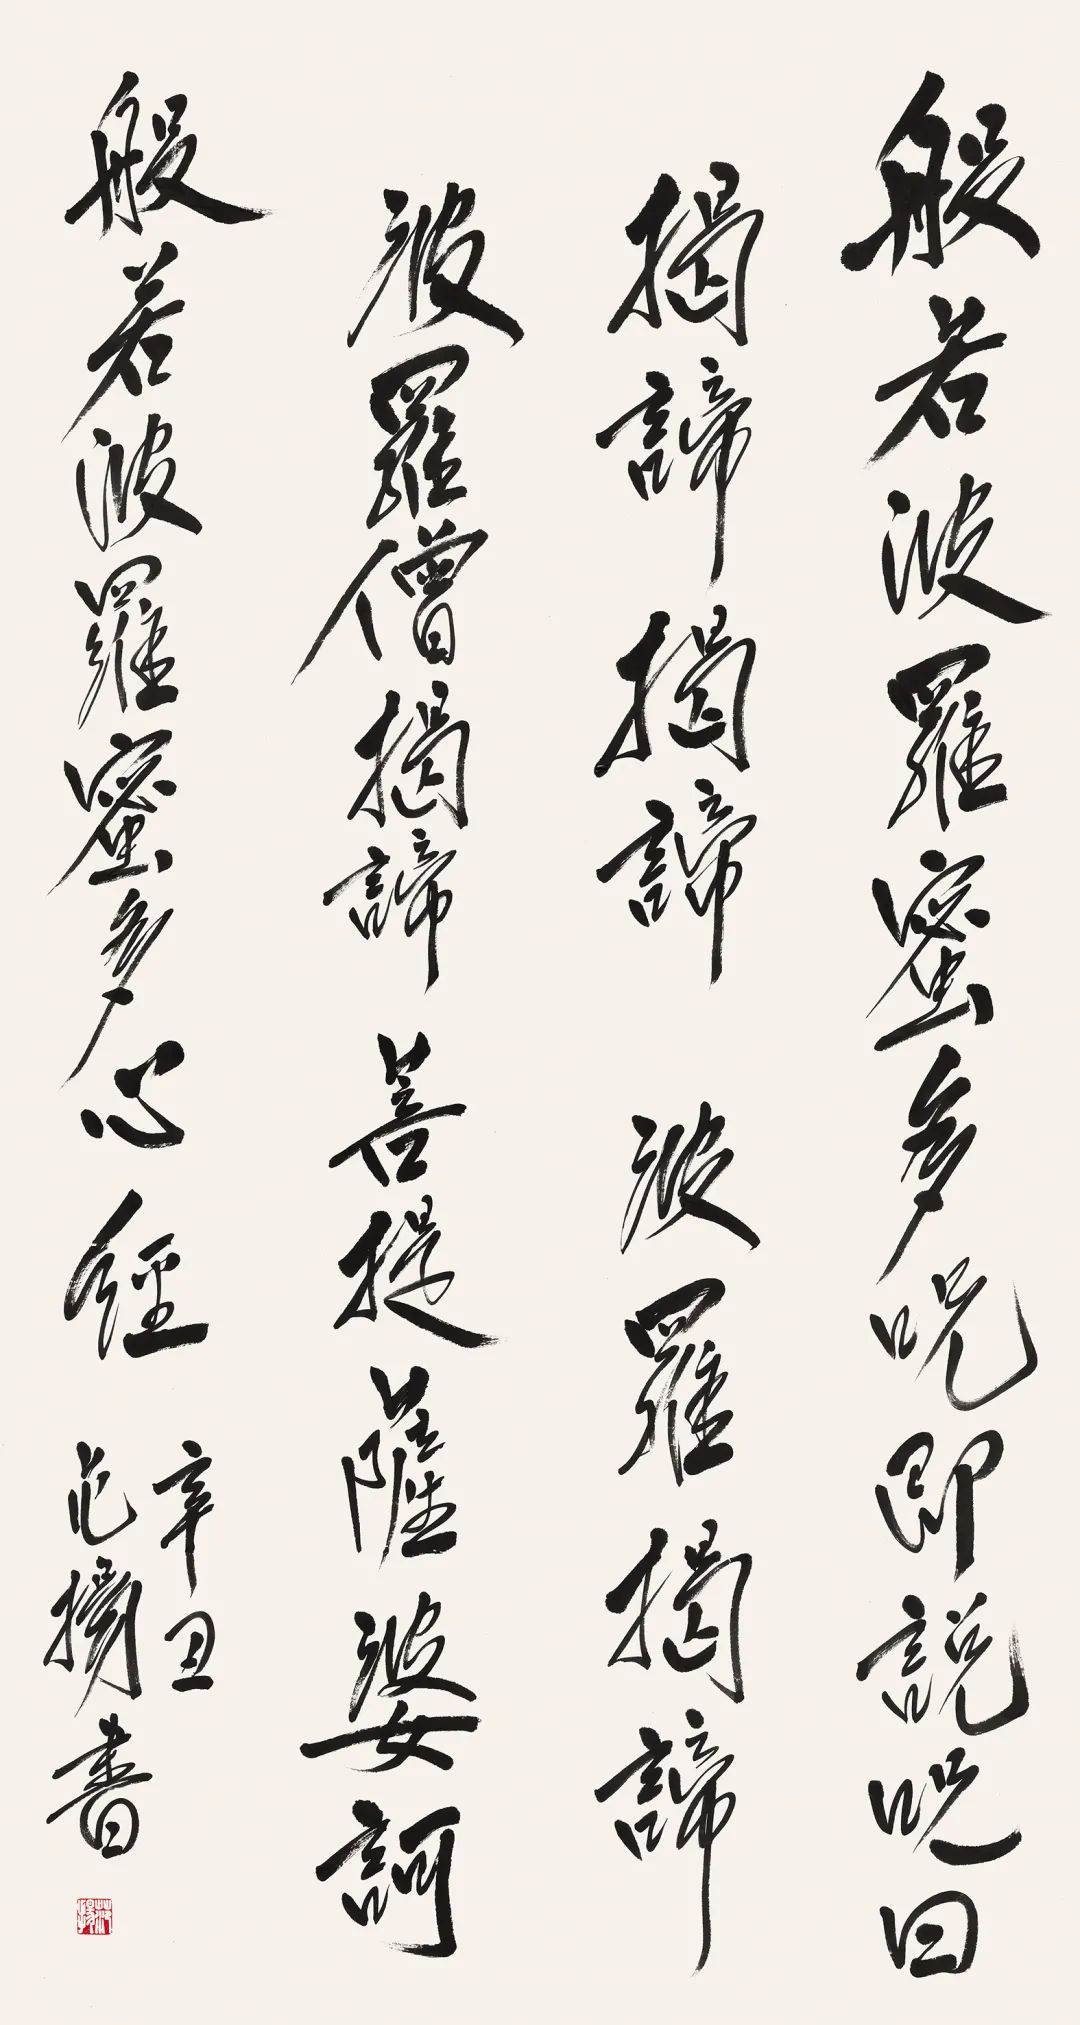 般若波羅蜜多咒即說咒曰
揭諦揭諦 波羅揭諦
波羅僧揭諦 菩提薩婆訶
般若波羅蜜多心經
辛丑
范揚書